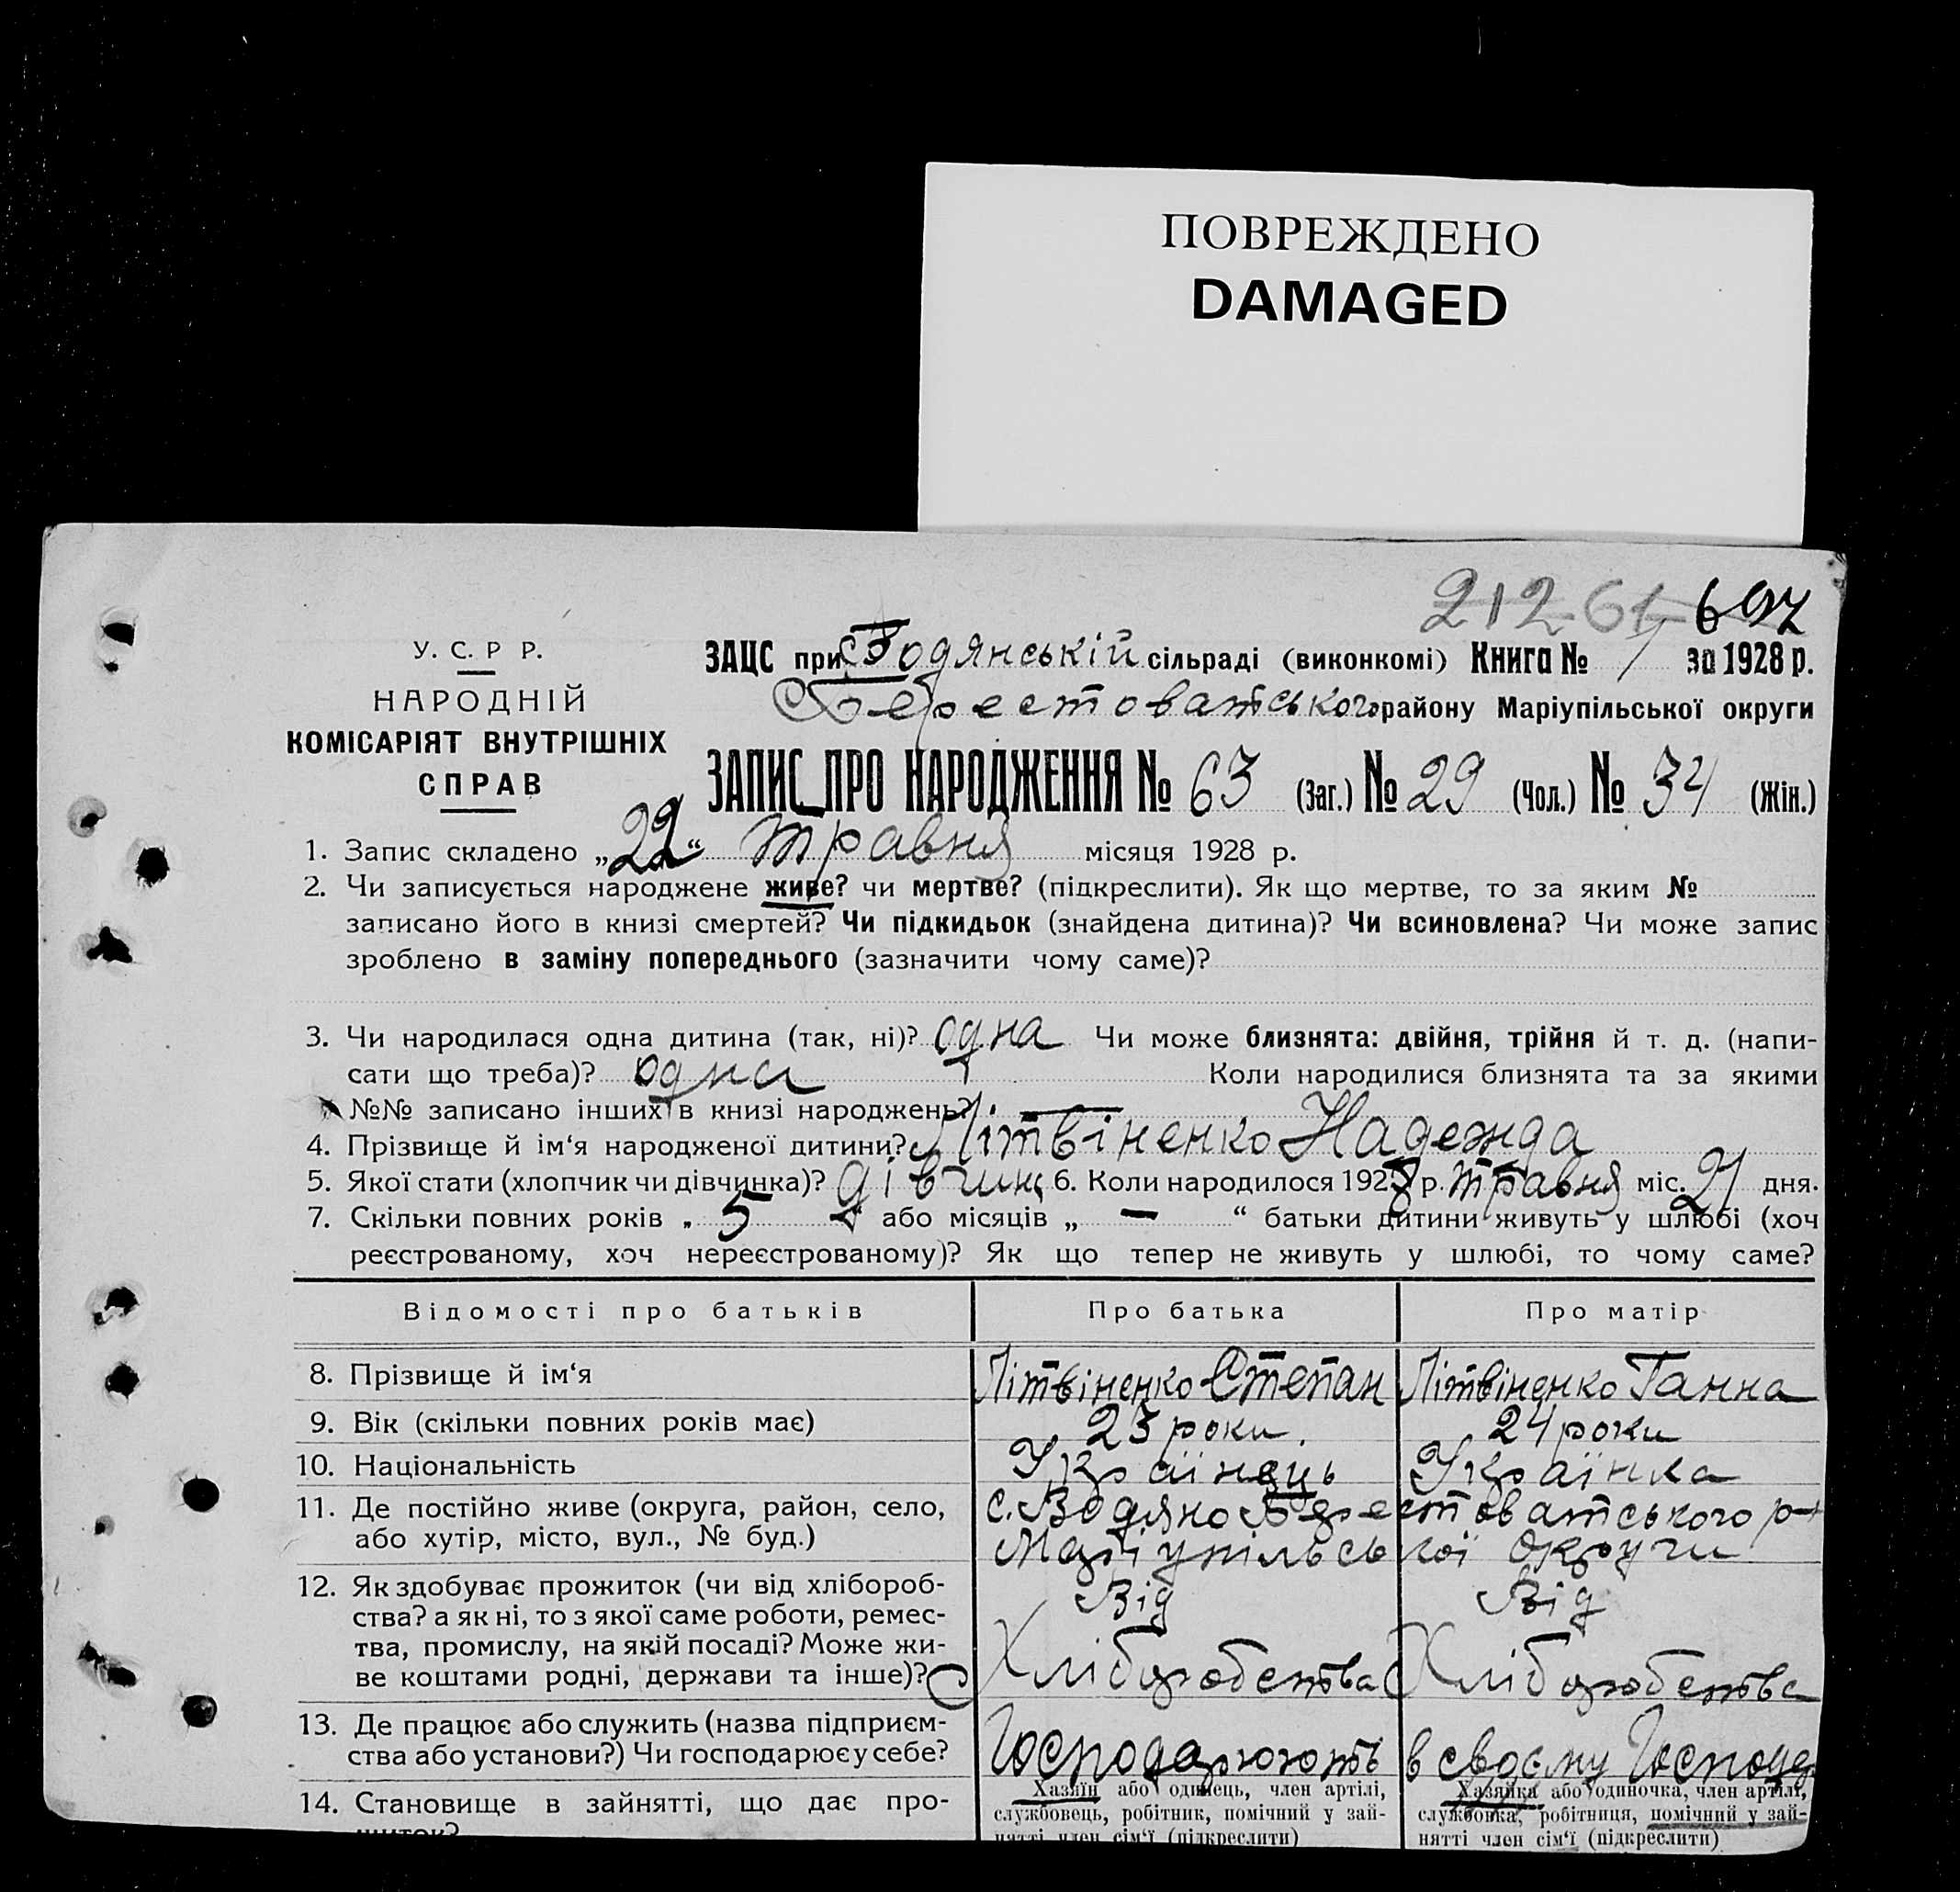 ПОВРЕЖДЕНО
DAMAGED
212 61 692
У. С. Р Р.
НАРОДНІЙ
КОМІСАРІЯТ ВНУТРІШНІХ
СПРАВ
ЗАЦС при Водянській сільраді (виконкомі) Книга № 1 за 1928 р.
Берестоватського району Маріупільської округи
ЗАПИС ПРО НАРОДЖЕННЯ № 63 (Заг.) № 29 (Чол.) № 34 (Жін.)
1. Запис складено „22“ травня місяця 1928 р.
2. Чи записується народжене живе? чи мертве? (підкреслити). Як що мертве, то за яким №
записано його в книзі смертей? Чи підкидьок (знайдена дитина)? Чи всиновлена? Чи може запис
зроблено в заміну попереднього (зазначити чому саме)?
3. Чи народилася одна дитина (так, ні)? одна Чи може близнята: двійня, трійня й т. д. (напи-
сати що треба)? одна Коли народилися близнята та за якими
№№ записано інших в книзі народжень? —
4. Прізвище й ім‘я народженої дитини? Літвіненко Надежда
5. Якої стати (хлопчик чи дівчинка)? дівчинц 6. Коли народилося 1928 р. травня міс. 21 дня.
7. Скільки повних років „ 5 “ або місяців „ — “ батьки дитини живуть у шлюбі (хоч
реєстрованому, хоч нереєстрованому)? Як що тепер не живуть у шлюбі, то чому саме?
Відомості про батьків Про батька Про матір
8. Прізвище й ім‘я Літвіненко Степан Літвіненко Ганна
9. Вік (скільки повних років має) 23 роки. 24 роки
10. Національність Українець Українка
11. Де постійно живе (округа, район, село, с. Водяно Берестоватського р-
або хутір, місто, вул., № буд.) Маріупільської округи
12. Як здобуває прожиток (чи від хлібороб- Від Від
ства? а як ні, то з якої саме роботи, ремес-
тва, промислу, на якій посаді? Може жи-
ве коштами родні, держави та інше)? Хліборобства Хліборобства
13. Де працює або служить (назва підприєм-
ства або установи?) Чи господарює у себе? Господарюють в своєму Господ
14. Становище в зайнятті, що дає про- Хазяїн або одинець, член артілі, Хазяйка або одиночка, член артілі,
службовець, робітник, помічний у зай- службовка, робітниця, помічний у зай-
житок? нятті член сім‘ї (підкреслити) нятті член сім‘ї (підкреслити)